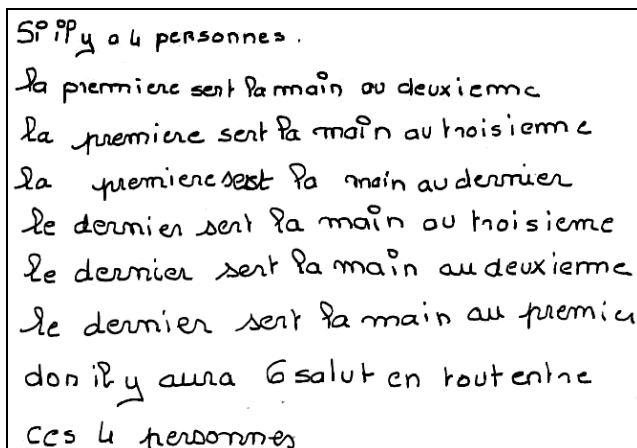 Si il y a 4 personnes.
la premiere sert la main au deuxieme
la premiere sert la main au troisieme
la premiere sest la main au dernier
le dernier sert la main au troisieme
le dernier sert la main au deuxieme
le dernier sert la main au premier
don il y aura 6 salut en tout entre
ces 4 personnes